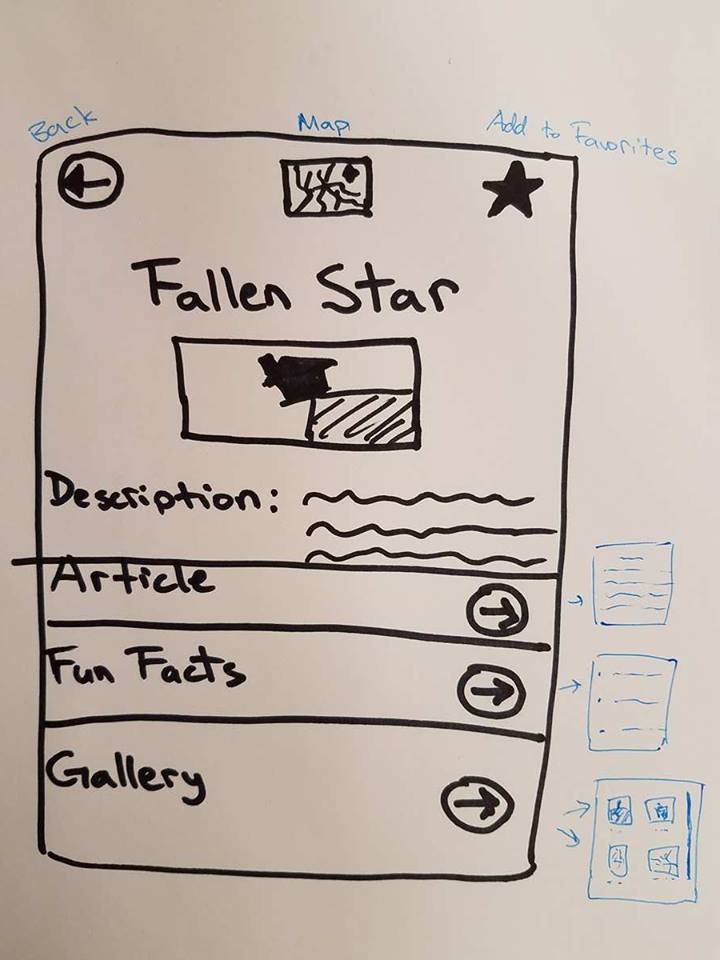 Back Map Add to Favorites
Fallen Star
Description:
Article
Fun Facts
Gallery